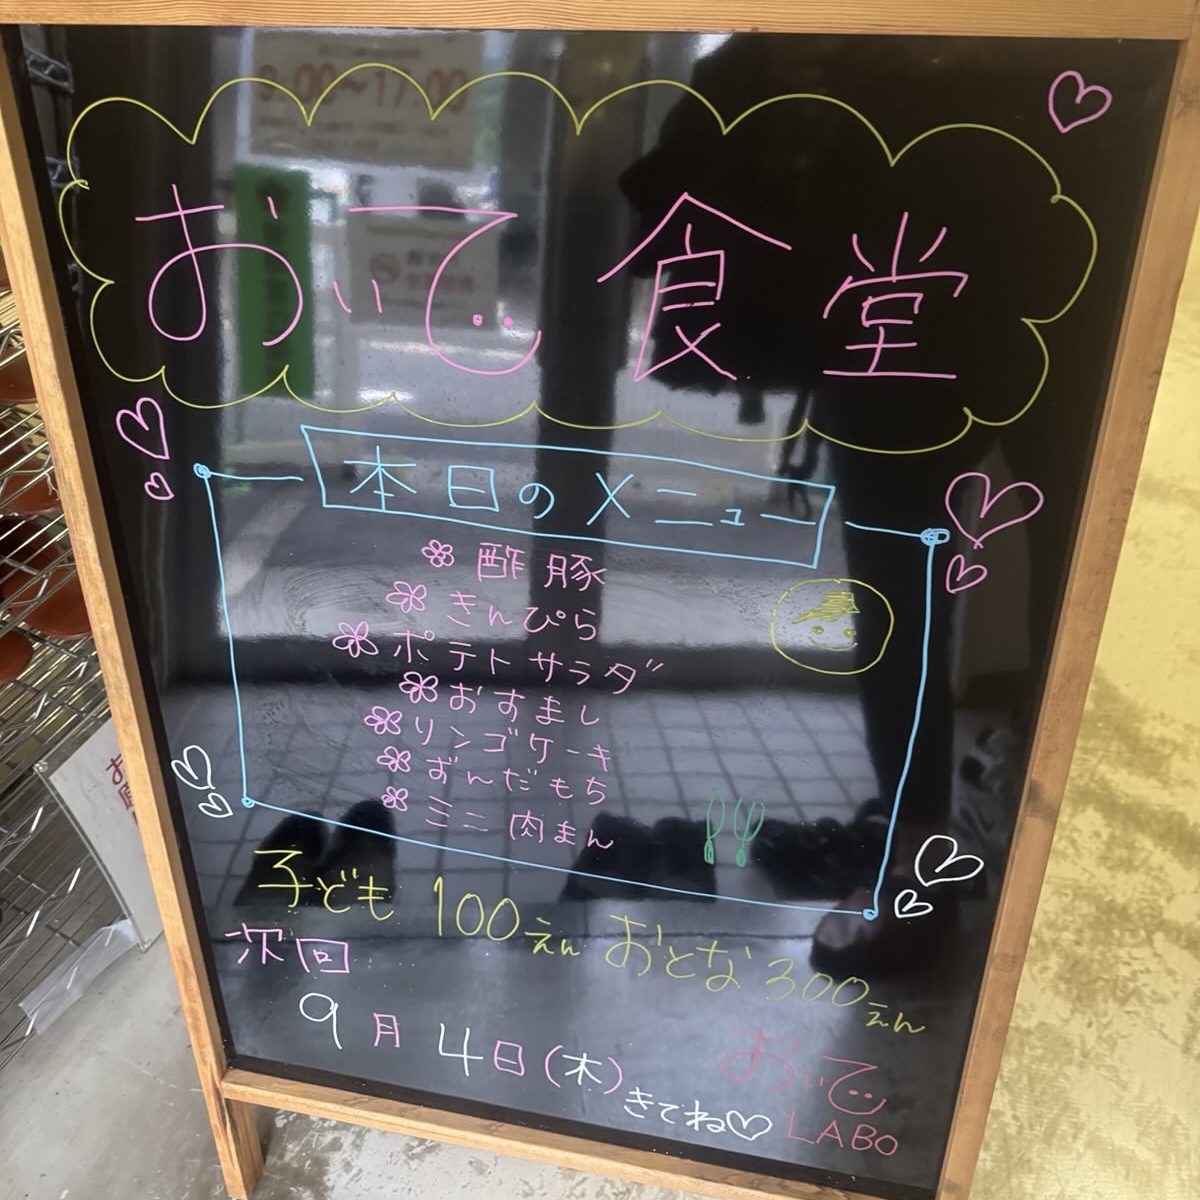 おいで食堂
本日のメニュー
酢豚
きんぴら
ポテトサラダ
おすまし
リンゴケーキ
ずんだもち
ミニ肉まん
子ども100えん おとな300えん
次回
9月4日(木)
きてね♡
おいで
LABO
9:00～17:00